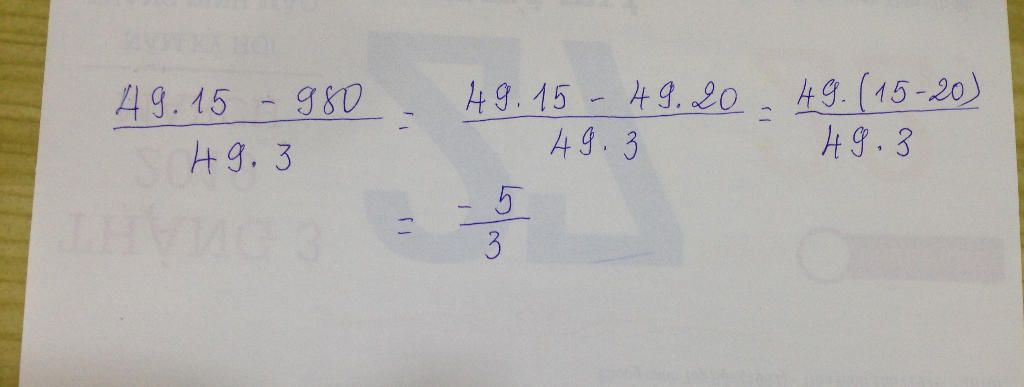 49.15 - 980 / 49.3 = 49.15 - 49.20 / 49.3 = 49.(15-20) / 49.3
= -5 / 3